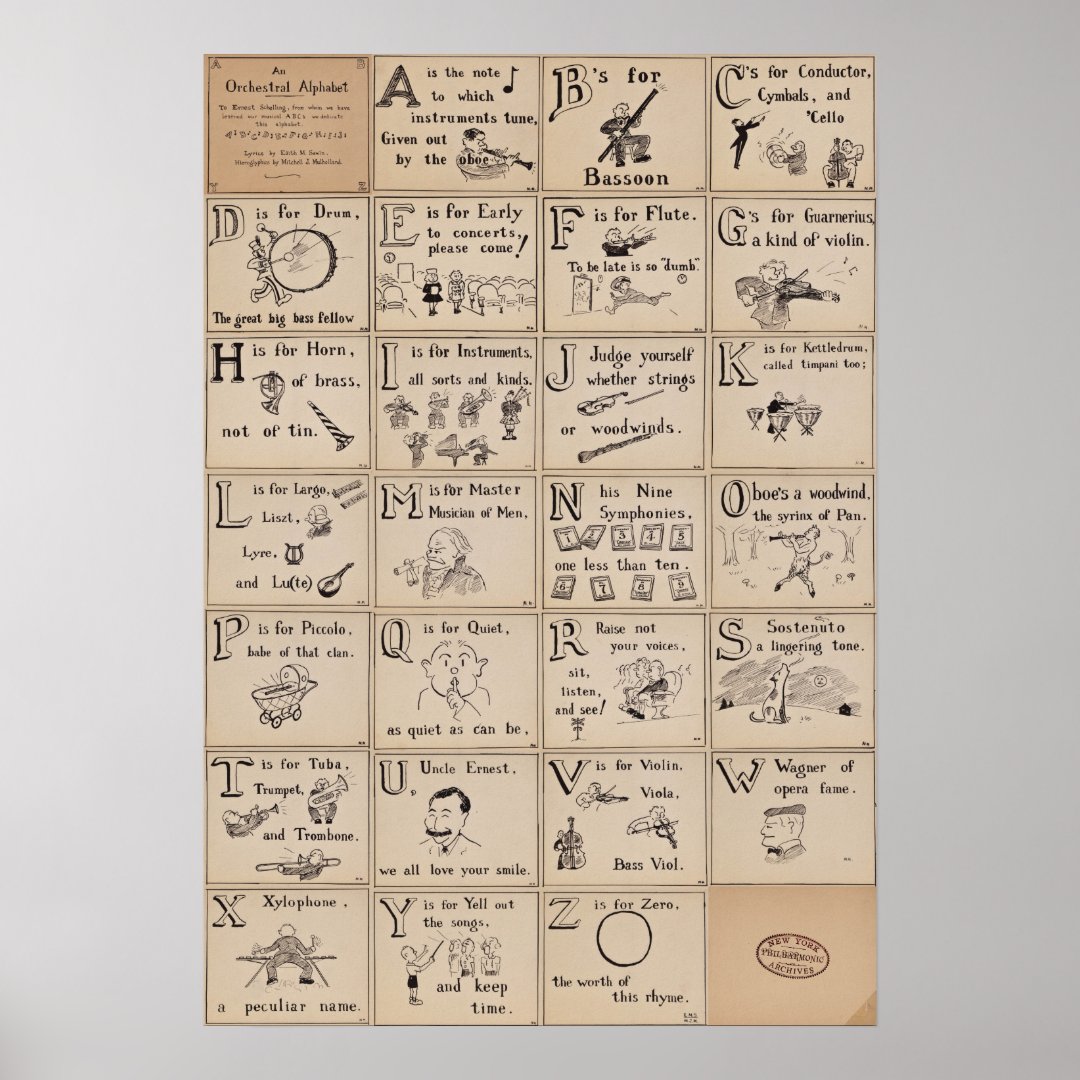 A B
An
Orchestral Alphabet
To Ernest Schelling, from whom we have
learned our musical ABCs we dedicate
this alphabet.
Lyrics by Edith M. Sawin.
Hieroglyphics by Mitchell J. Mulholland.
Y Z
A is the note
to which
instruments tune,
Given out
by the oboe
M.M.
B's for
Bassoon
M.M.
C's for Conductor,
Cymbals, and
'Cello
M.M.
D is for Drum,
The great big bass fellow
M.M.
E is for Early
to concerts,
please come!
M.M.
F is for Flute.
To be late is so "dumb".
M.M.
G's for Guarnerius,
a kind of violin.
M.M.
H is for Horn,
of brass,
not of tin.
M.M.
I is for Instruments,
all sorts and kinds.
J Judge yourself
whether strings
or woodwinds.
M.M.
K is for Kettledrum,
called timpani too;
M.M.
L is for Largo,
Liszt,
Lyre,
and Lu(te)
M.M.
M is for Master
Musician of Men,
M.M.
N his Nine
Symphonies,
1 2 3 4 5
one less than ten.
6 7 8 9
M.M.
Oboe's a woodwind,
the syrinx of Pan.
M.M.
P is for Piccolo,
babe of that clan.
M.M.
Q is for Quiet,
as quiet as can be,
M.M.
R Raise not
your voices,
sit,
listen,
and see!
M.M.
S Sostenuto
a lingering tone.
M.M.
T is for Tuba,
Trumpet,
and Trombone.
M.M.
U, Uncle Ernest,
we all love your smile.
M.M.
V is for Violin,
Viola,
Bass Viol.
M.M.
W Wagner of
opera fame.
M.M.
X Xylophone,
a peculiar name.
Y is for Yell out
the songs,
and keep
time.
Z is for Zero,
the worth of
this rhyme.
E.M.S.
M.J.M.
NEW YORK
PHILHARMONIC
ARCHIVES